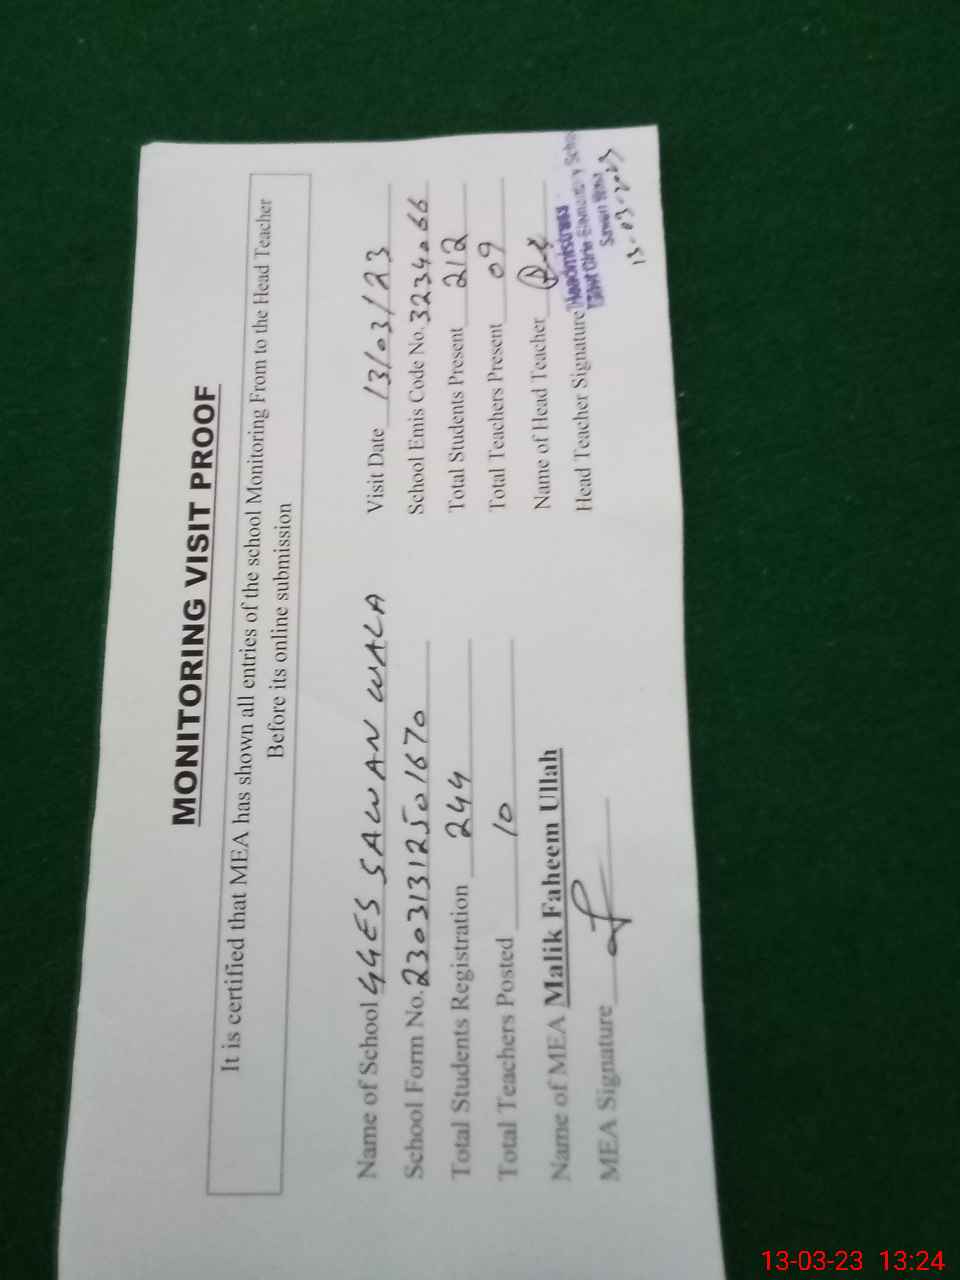 MONITORING VISIT PROOF
It is certified that MEA has shown all entries of the school Monitoring From to the Head Teacher
Before its online submission
Name of School GGES SAWAN WALA
Visit Date 13/03/23
School Form No. 23031312501670
School Emis Code No. 3234066
Total Students Registration 244
Total Students Present 212
Total Teachers Posted 10
Total Teachers Present 09
Name of MEA Malik Faheem Ullah
Name of Head Teacher
MEA Signature
Head Teacher Signature
Headmistress
Girls Elementary School
13-03-2023
13-03-23 13:24